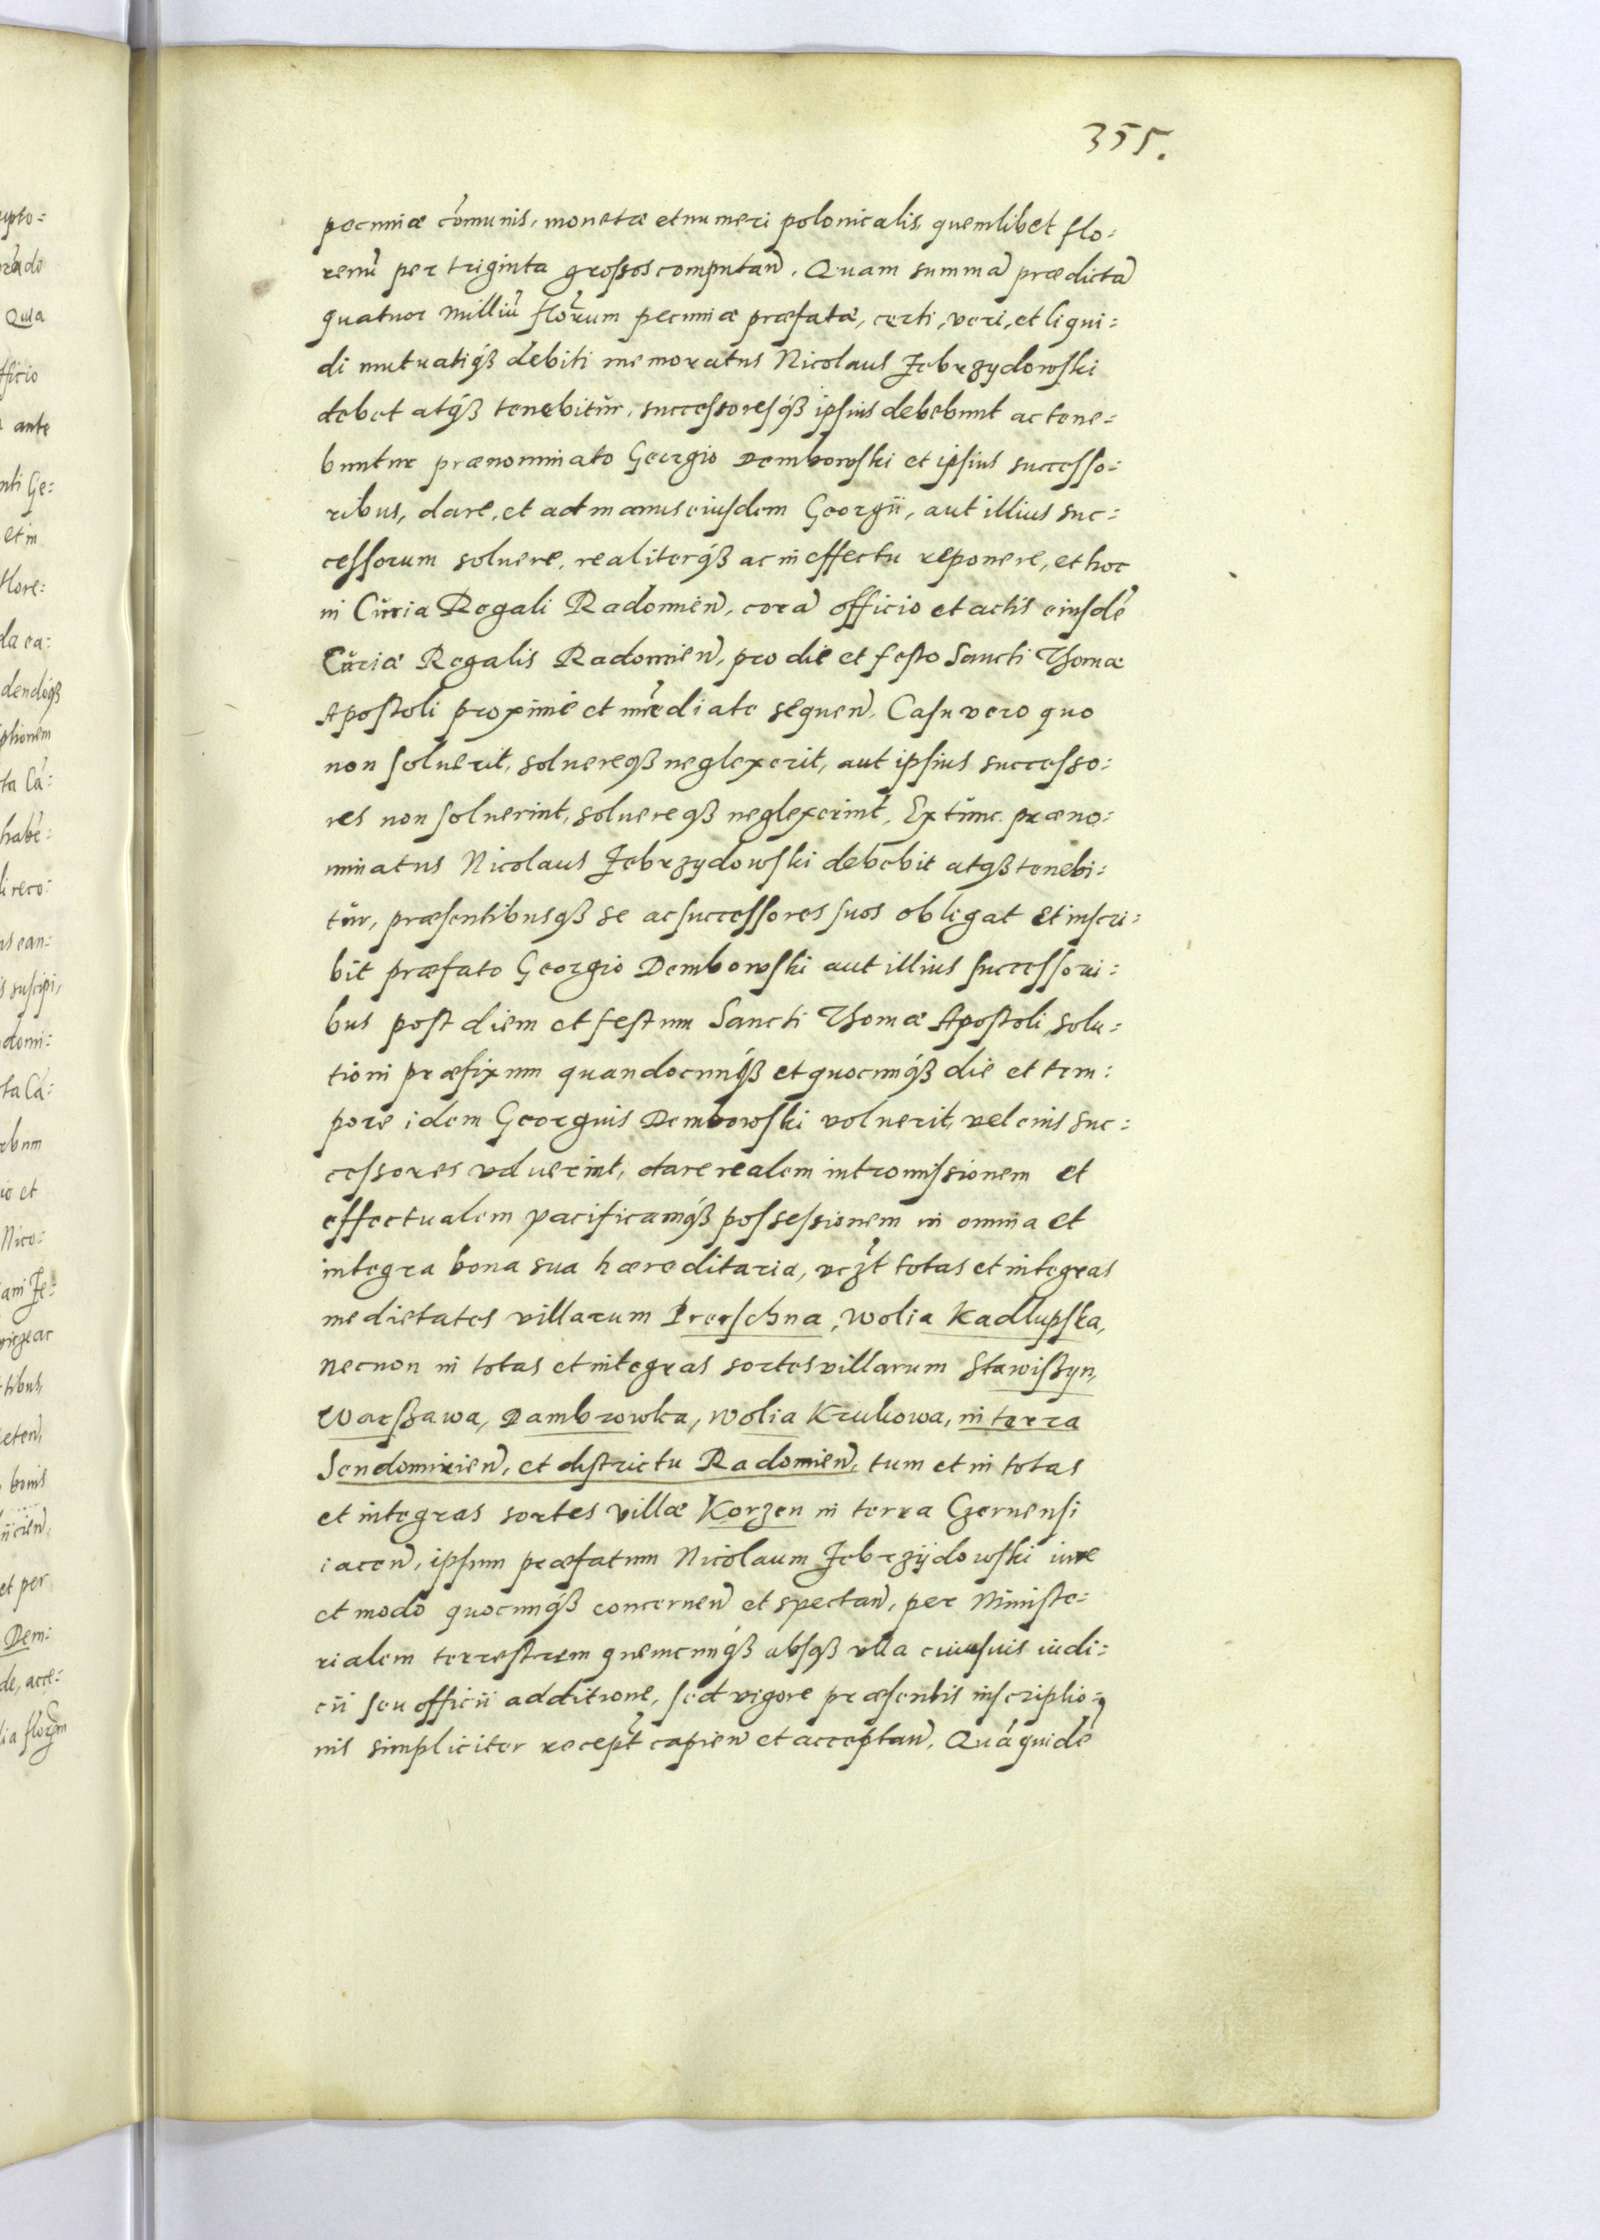 355.
pecuniæ cõmunis, monetæ et numeri polonicalis, quemlibet flo:
renũ per triginta grossos computañ. Quam summã prædictã
quatuor milliũ florum pecuniæ præfatæ, certi, veri, et liqui:
di mutuatiqꝫ debiti memoratus Nicolaus Zebrzydowski
debet atqꝫ tenebitur, successoresqꝫ ipsius debebunt ac tene:
buntur prænominato Georgio Dembowski et ipsius successo:
ribus, dare, et ad manus eiusdem Georgii, aut illius suc:
cessorum soluere, realiterqꝫ ac in effectu reponere, et hoc
in Curia Regali Radomieñ, corã officio et actis eiusdẽ
Curiæ Regalis Radomieñ, pro die et festo Sancti Thomæ
Apostoli proxime et im̃ediate sequeñ. Casu vero quo
non soluerit, soluereqꝫ neglexerit, aut ipsius successo:
res non soluerint, soluereqꝫ neglexerint, Ex tunc præno:
minatus Nicolaus Zebrzydowski debebit atqꝫ tenebi:
tur, præsentibusqꝫ se ac successores suos obligat et inscri:
bit præfato Georgio Dembowski aut illius successori:
bus post diem et festum Sancti Thomæ Apostoli, solu:
tioni præfixum quandocunqꝫ et quocunqꝫ die et tem:
pore idem Georgius Dembowski voluerit, vel eius suc:
cessores voluerint, dare realem intromissionem et
effectualem pacificamqꝫ possessionem in omnia et
integra bona sua hæreditaria, vczt totas et integras
medietates villarum Prerschna, Wolia Kadlupska,
necnon in totas et integras sortes villarum Stawiszyn,
Warszawa, Dambrowka, Wolia Krukowa, in terra
Sendomirieñ, et districtu Radomieñ, tum et in totas
et integras sortes villæ Korzen in terra Czernensi
iaceñ, ipsum præfatum Nicolaum Zebrzÿdowski iure
et modo quocunqꝫ concerneñ et spectañ, per Ministe:
rialem terrestrem quemcunqꝫ absqꝫ vlla cuiusuis iudi:
cii seu officii additione, sed vigore præsentis inscriptio:
nis simpliciter recept capieñ et acceptañ. Quã quidẽ